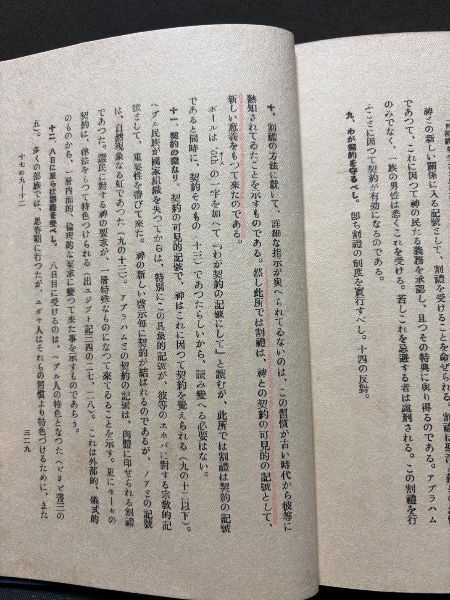 神との新しい關係に入る記號として、割禮を受けることを命ぜられる。割禮は
であつて、これに因つて神の民たる義務を承認し、且つその特典に與り得るのである。アブラハム
のみでなく、一族の男性は悉くこれを受ける。若しこれを忌避する者は識別される。この割禮を行
ふことに因つて契約が有効になるのである。
九、わが契約を守るべし。即ち割禮の制度を實行すべし。十四の反對。
十、割禮の方法に就いて、詳細な指示が與へられてゐないのは、この習慣が古い時代から彼等に
熟知されてゐたことを示すものである。然し此所では割禮は、神との契約の可見的の記號として、
新しい意義をもつて來たのである。
ボールは'ōthの一字を加へて「わが契約の記號にして」と讀むが、此所では割禮は契約の記號
であると同時に、契約そのもの(十三)であつたらしいから、讀み變へる必要はない。
十一、契約の徴なり。契約の可見的記號で、神はこれに因つて契約を變えられる(九の十二以下)。
ヘブル民族が國家組織を失つてからは、特別にこの具象的記號が、彼等のエホバに對する宗敎的記
號として、重要性を帶びて來た。神の新しい啓示毎に契約が結ばれるのであるが、ノアとの記號
は、自然現象なる虹であつた(九の十三)。アブラハムとの契約の記號は、肉體に印せられる割禮
であつた。選民に對する神の要求が、一層特殊なものになつて來てゐることを示す。更にモーセの
契約は、律法をもつて特色づけられる(出エジプト記二四の二七、二八)。これは外部的、儀式的
のものから、一層内面的、倫理的な要求に變つて來た事を示すものであらう。
十二、八日に至らば割禮を受べし。八日目に受けるのは、ヘブル人の特色となつた(ピリピ書三の
五)。多くの部族では、思春期に行つたが、ユダヤ人はそれらの習慣より特色づけるために、また
十七の九―十二
三二九